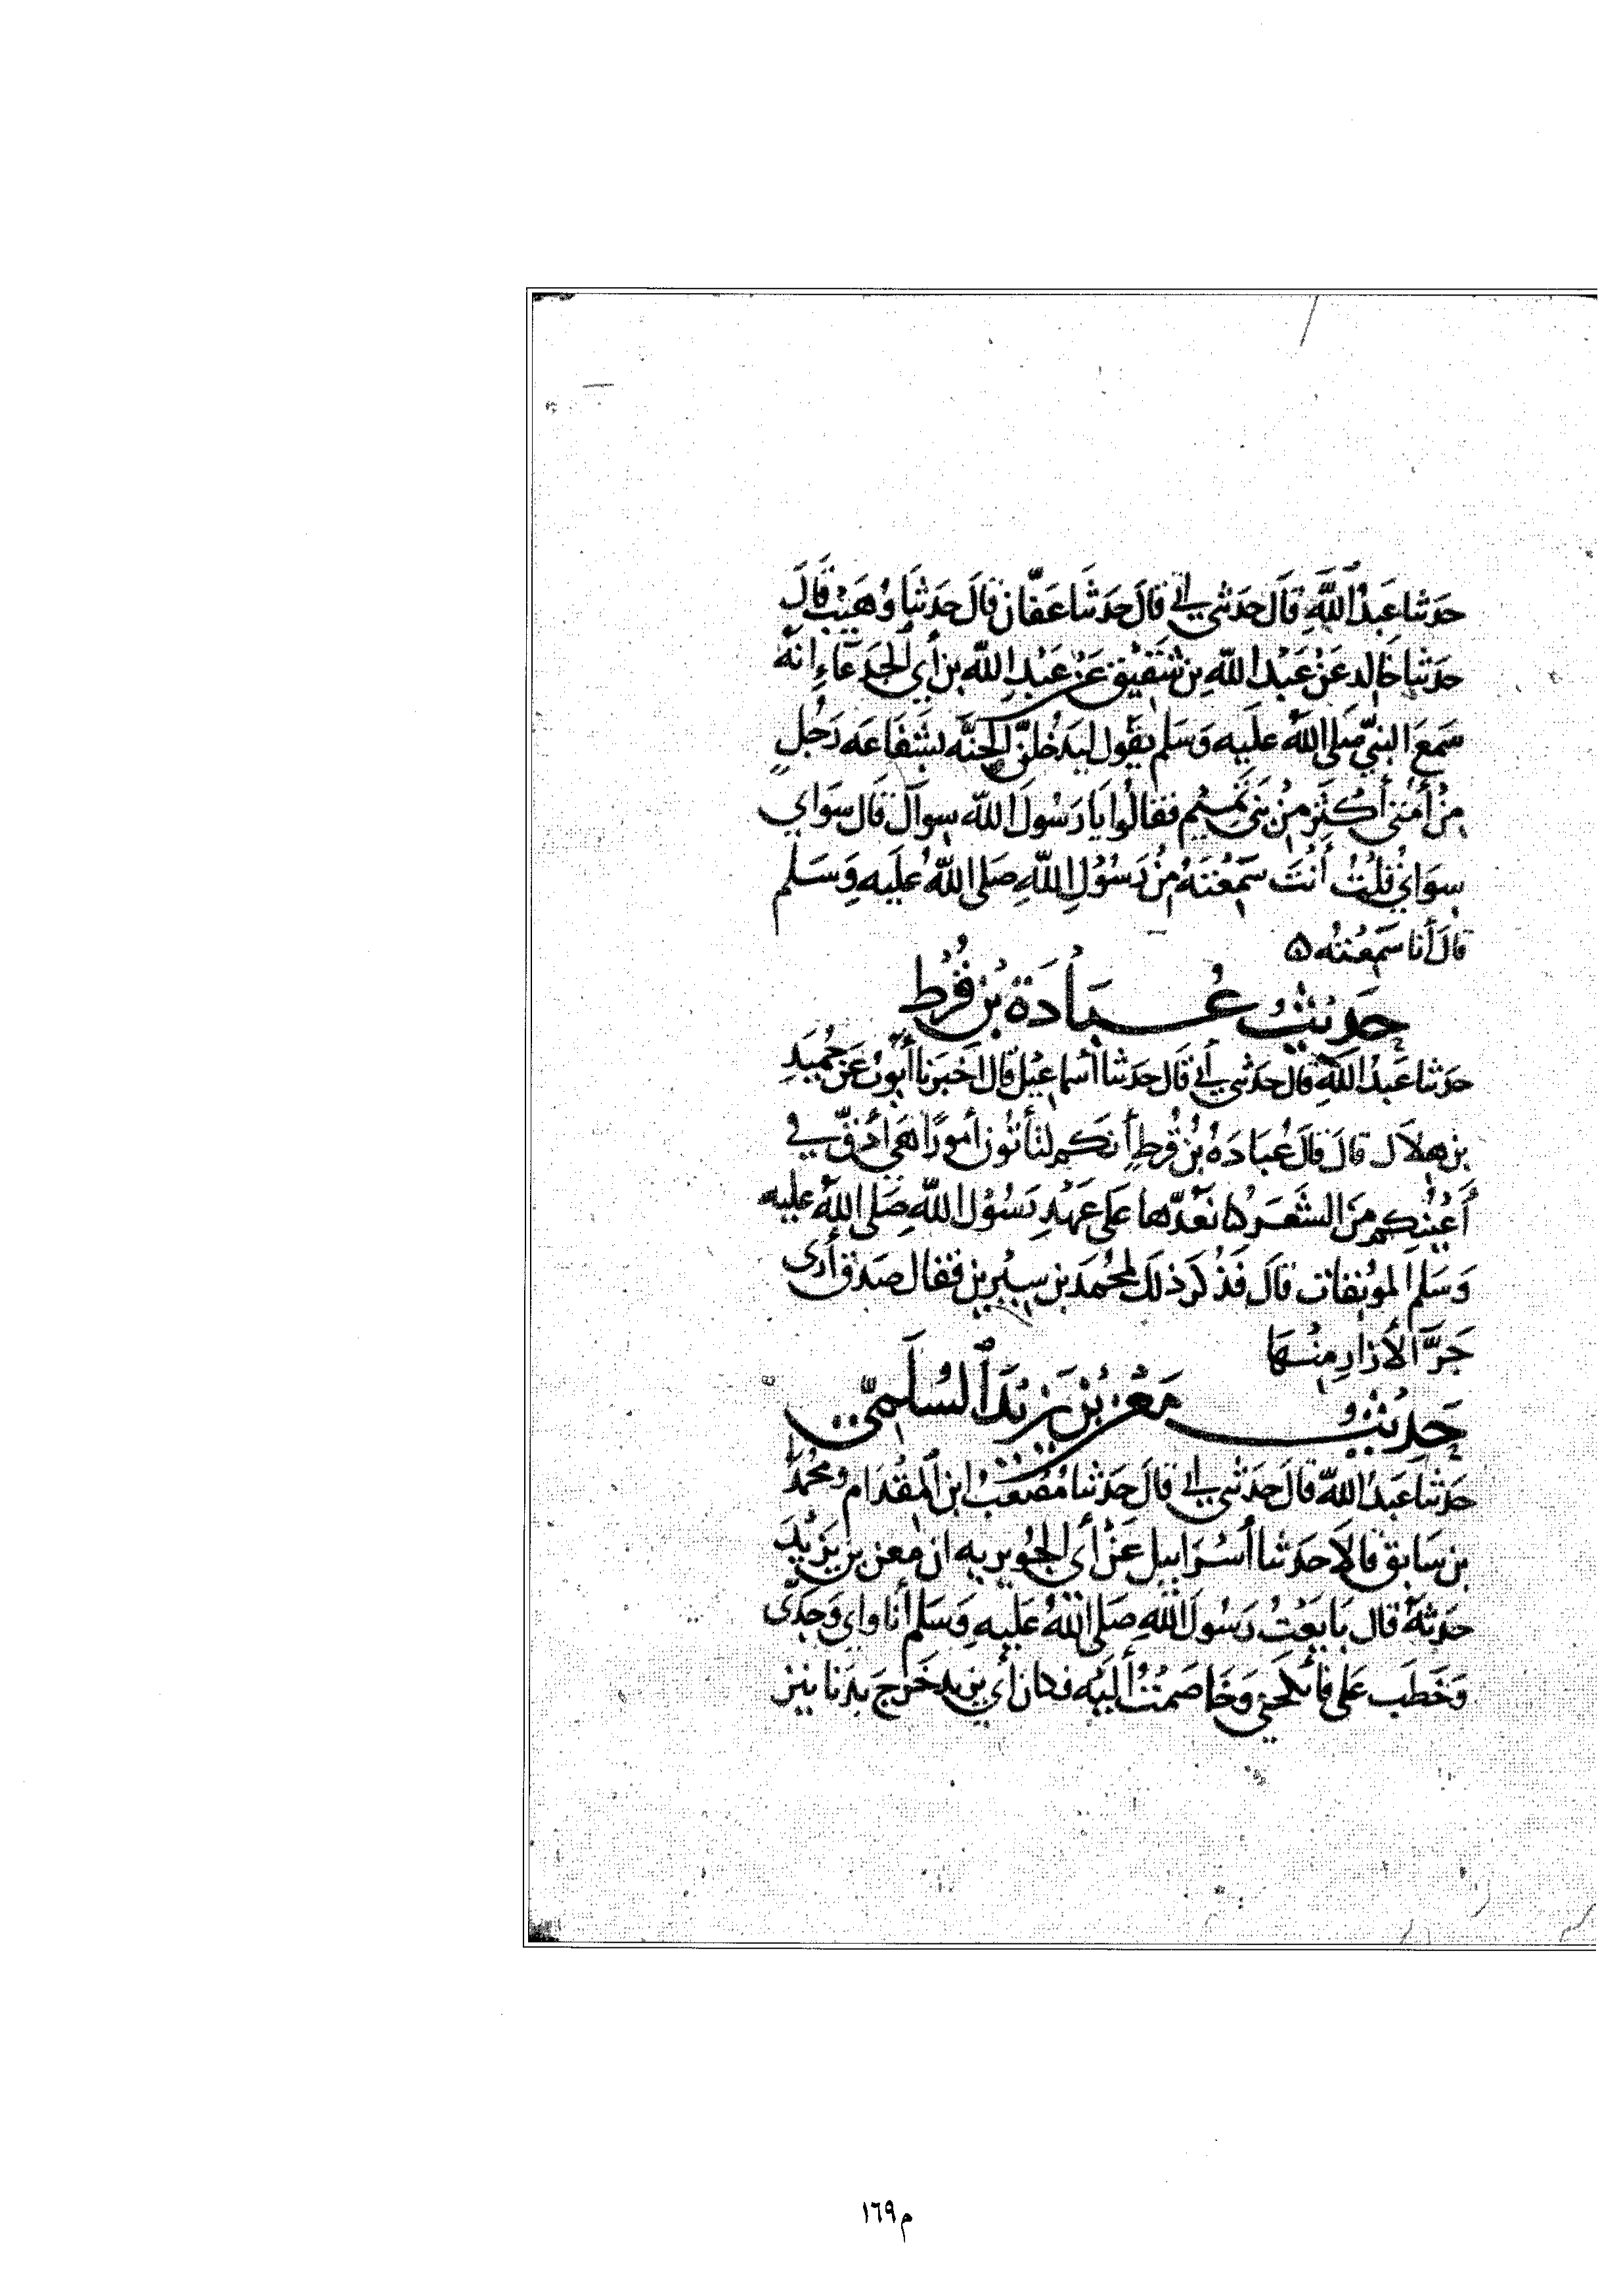 حَدثنا عَبدُ اللَّهِ قَالَ حَدثني أبي قَالَ حَدثنا عَفّان قَالَ حَدثنا وُهَيْبٌ قَالَ
حَدثنا خالد عَنْ عَبْدِ اللَّهِ بن شَقِيْقٍ عَنْ عَبْدِ اللّه بن أبي الجَدعَاءِ انَّهُ
سَمعَ النبيّ صَلى اللَّهُ علَيه وَسَلم يقُول ليَدخُلنَّ الجنَّه بشَفَاعَه رَجُلٍ
مِنْ أمتي أكثَر مِنْ بَني تميْم فقالُوا يَا رَسُولَ اللَّه سِوآل قَال سوَاي
سِوَاي قُلتُ أنتَ سَمعْتَهُ مِنْ رَسُوْلِ اللَّهِ صَلى اللَّهُ علَيه وَسَلم
قالَ أنا سَمعْتُه ۵
حَدِيثُ عُبَادَة بْن قُرْطٍ
حَدثنا عَبدُ اللَّهِ قالَ حَدثني أبي قَال حدثنا أسماعيْل قَال أخبرنا أيّوبُ عَنْ حُميَدِ
بن هِلاَل قالَ قالَ عُبَادَهُ بْنُ قُرطٍ أنكم لتأتُون أمورًا هَي أدقّ في
أعيُنِكم مِنَ الشَعَر كُنا نَعُدّها عَلى عَهْدِ رَسُوْل اللَّهِ صَلى اللَّهُ عليه
وَسَلم الموُبقات قالَ فَذُكرَ ذلك لمحُمدَ بن سيْرِين فقال صَدقَ أرى
جَرَّ الأزارِ مِنْهَا
حَدِيْثُ مَعْن بْن يَزِيْدَ السُلَميّ
حَدثنا عَبدُ اللَّه قالَ حَدثني أبي قَالَ حَدثنا مُصْعَبُ ابن المِقْدَام ومُحُمدُ
بن سَابق قالاَ حدثنا أسْرَاييل عَنْ أبي الجُوَيريه ان معن بن يَزيْدَ
حَدثهُ قال بَايَعْتُ رَسُولَ اللَّهِ صَلى اللَّهُ عَليه وَسَلم أنا وابي وَجَدّى
وَخَطَب عَلى فأنكحَني وَخَاصَمْتُ ألَيْه فكان أبي يزيد خَرجَ بدَنانِيْر
م١٦٩